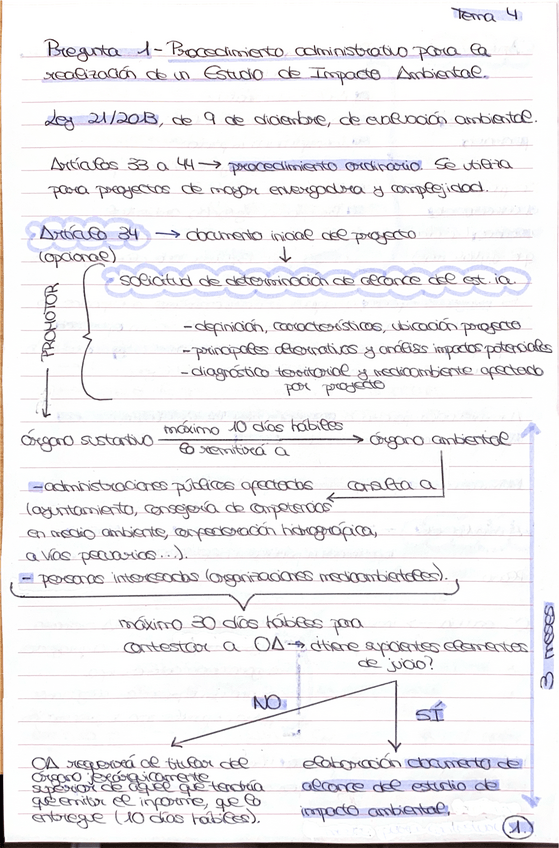 Tema 4
Pregunta 1- Procedimiento administrativo para la
realización de un Estudio de Impacto Ambiental.
Ley 21/2013, de 9 de diciembre, de evaluación ambiental.
Artículos 33 a 44 → procedimiento ordinario. Se utiliza
para proyectos de mayor envergadura y complejidad.
Artículo 34 → documento inicial del proyecto
(opcional) ↓
solicitud de determinación de alcance del est.ia.
PROMOTOR
-definición, características, ubicación proyecto
-principales alternativas y análisis impactos potenciales
-diagnóstico territorial y medioambiente afectado
por proyecto
máximo 10 días hábiles
órgano sustantivo → órgano ambiental
lo remitirá a
-administraciones públicas afectadas consulta a
(ayuntamiento, consejería de competencias
en medio ambiente, confederación hidrográfica,
a vías pecuarias...).
- personas interesadas (organizaciones medioambientales).
máximo 30 días hábiles para
contestar a OA → ¿tiene suficientes elementos
de juicio?
3 meses
NO
SÍ
OA requerirá al titular del
órgano jerárquicamente
superior de aquel que tendría
que emitir el informe, que lo
entregue (10 días hábiles).
elaboración documento de
alcance del estudio de
impacto ambiental.
1.